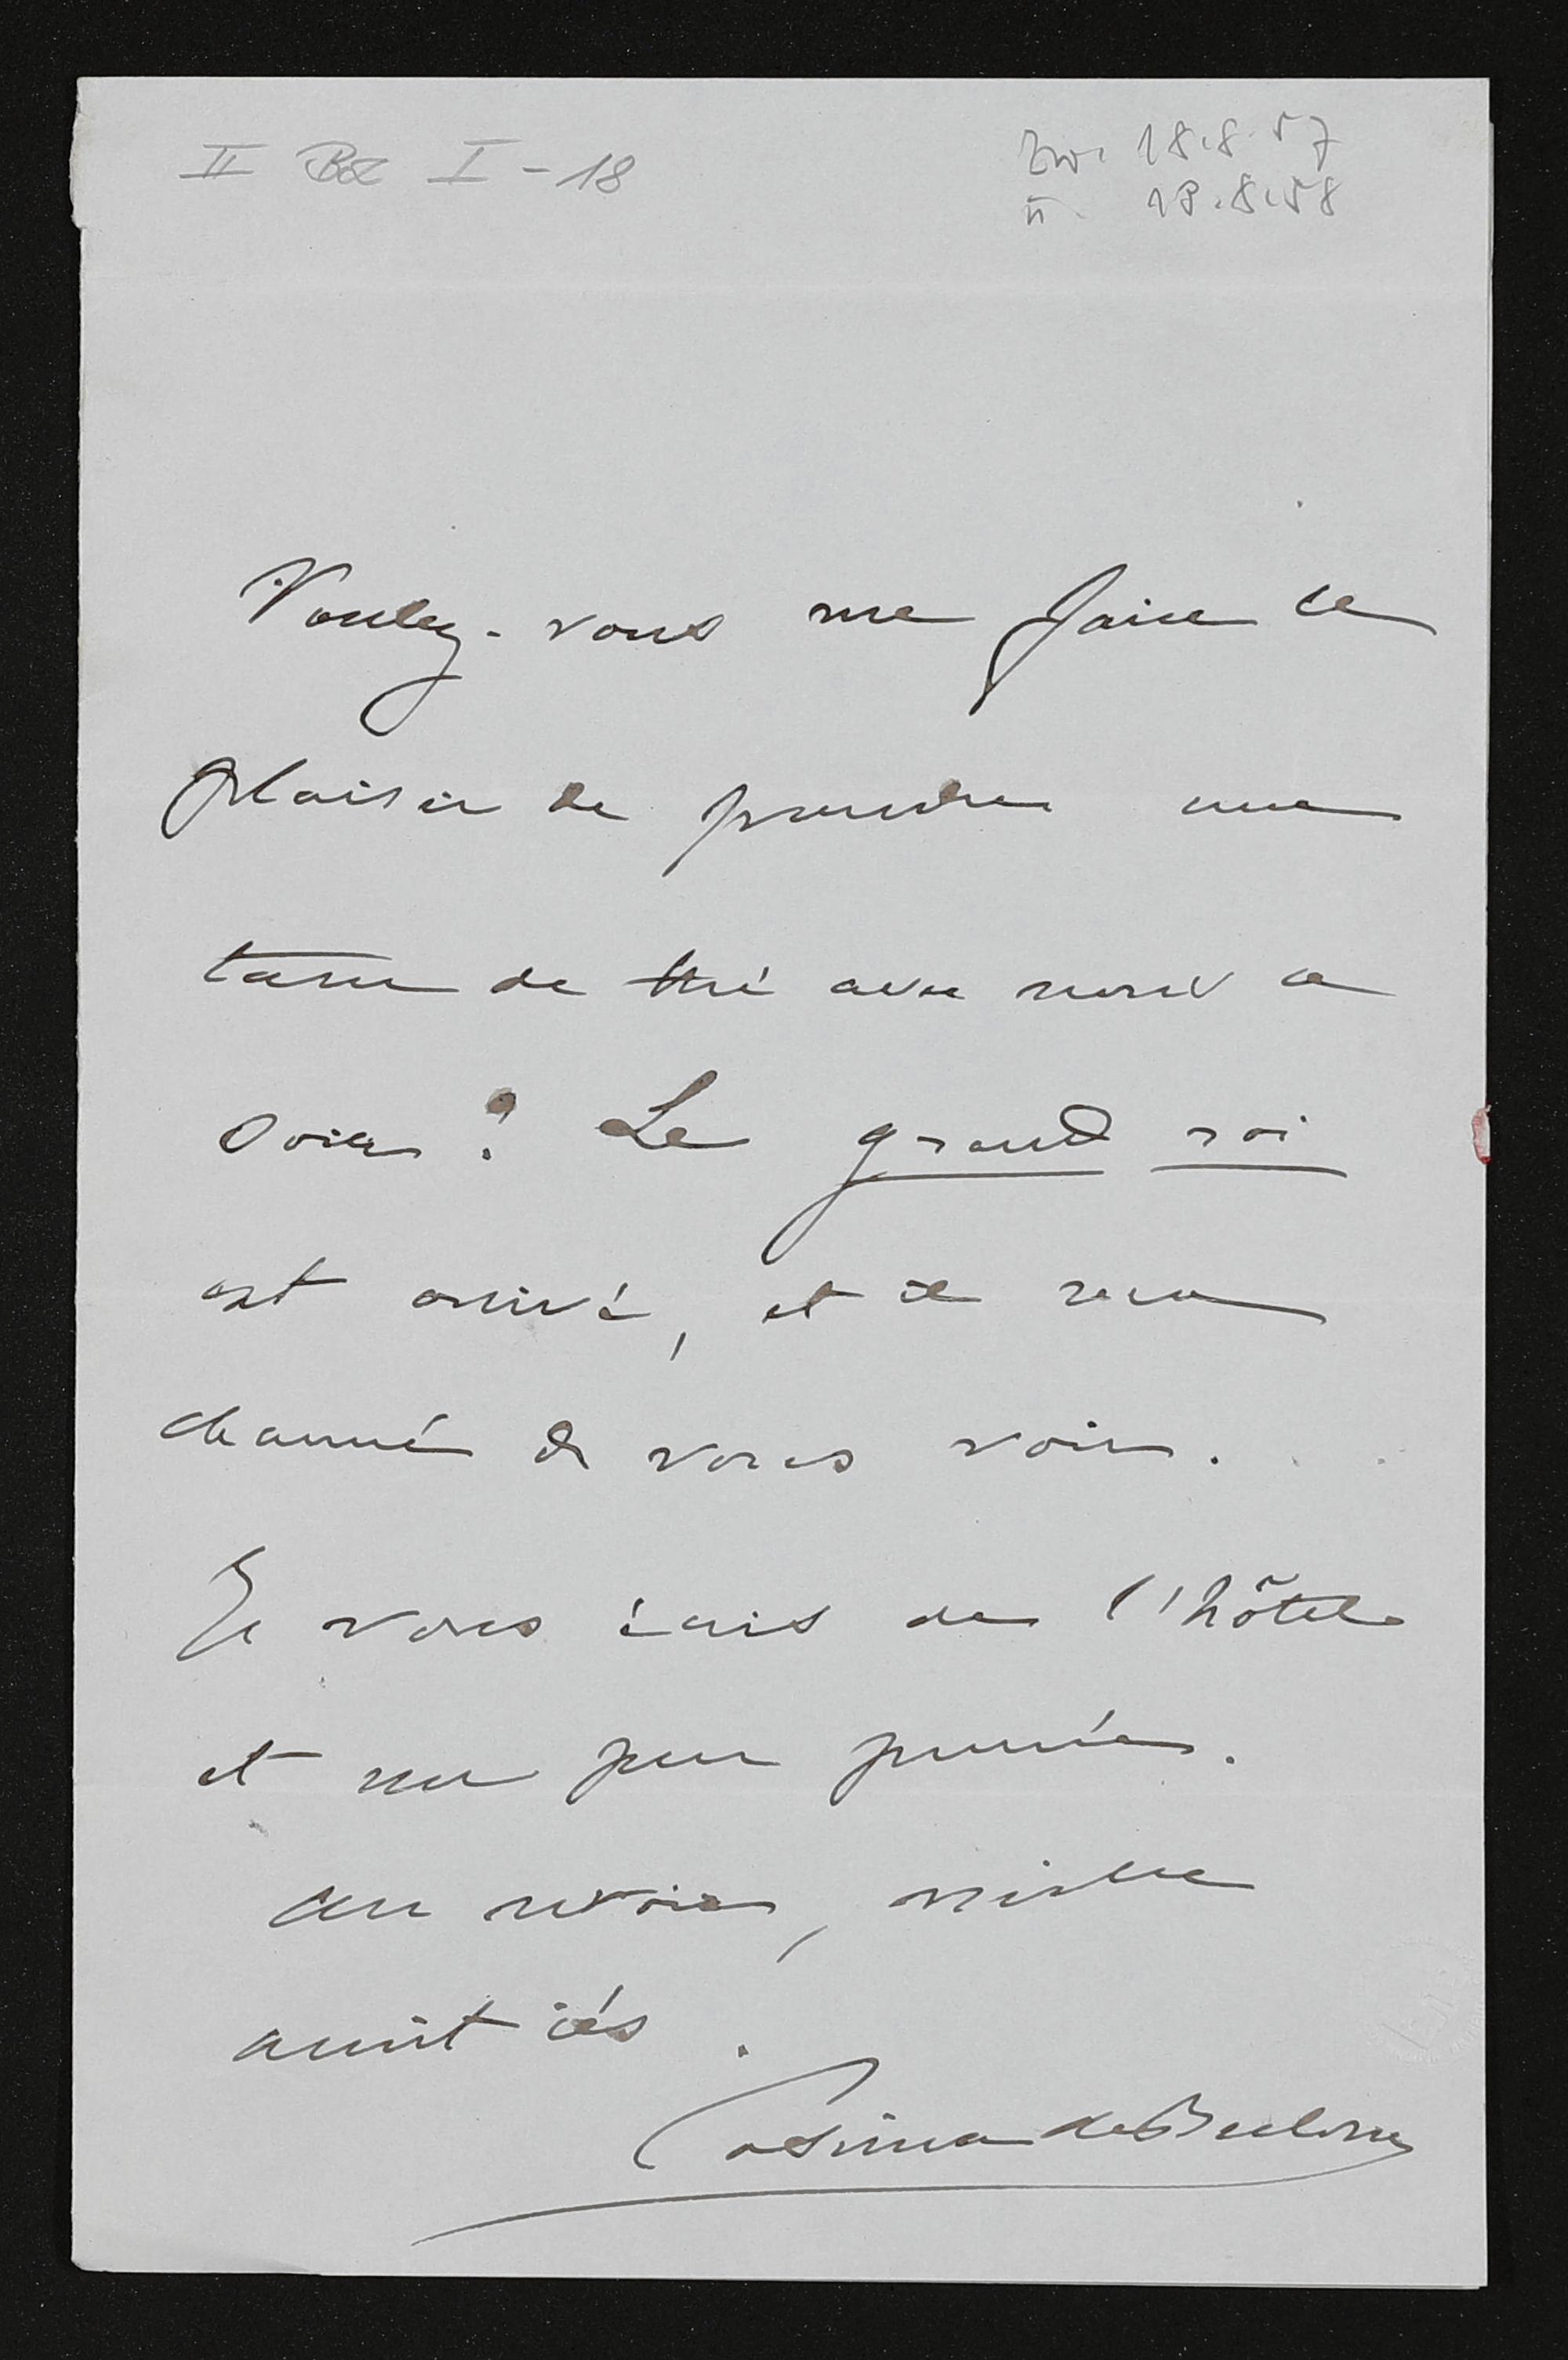 II Bz I - 18
Zw. 18.8.57
II. 18.8.58
Voulez-vous me faire le
plaisir de prendre une
tasse de thé avec nous ce
soir? Le grand roi
est arrivé, et il sera
charmé de vous voir.
Je vous écris de l'hôtel
et peu
au revoir, mille
amitiés.
Cosima de Bulow